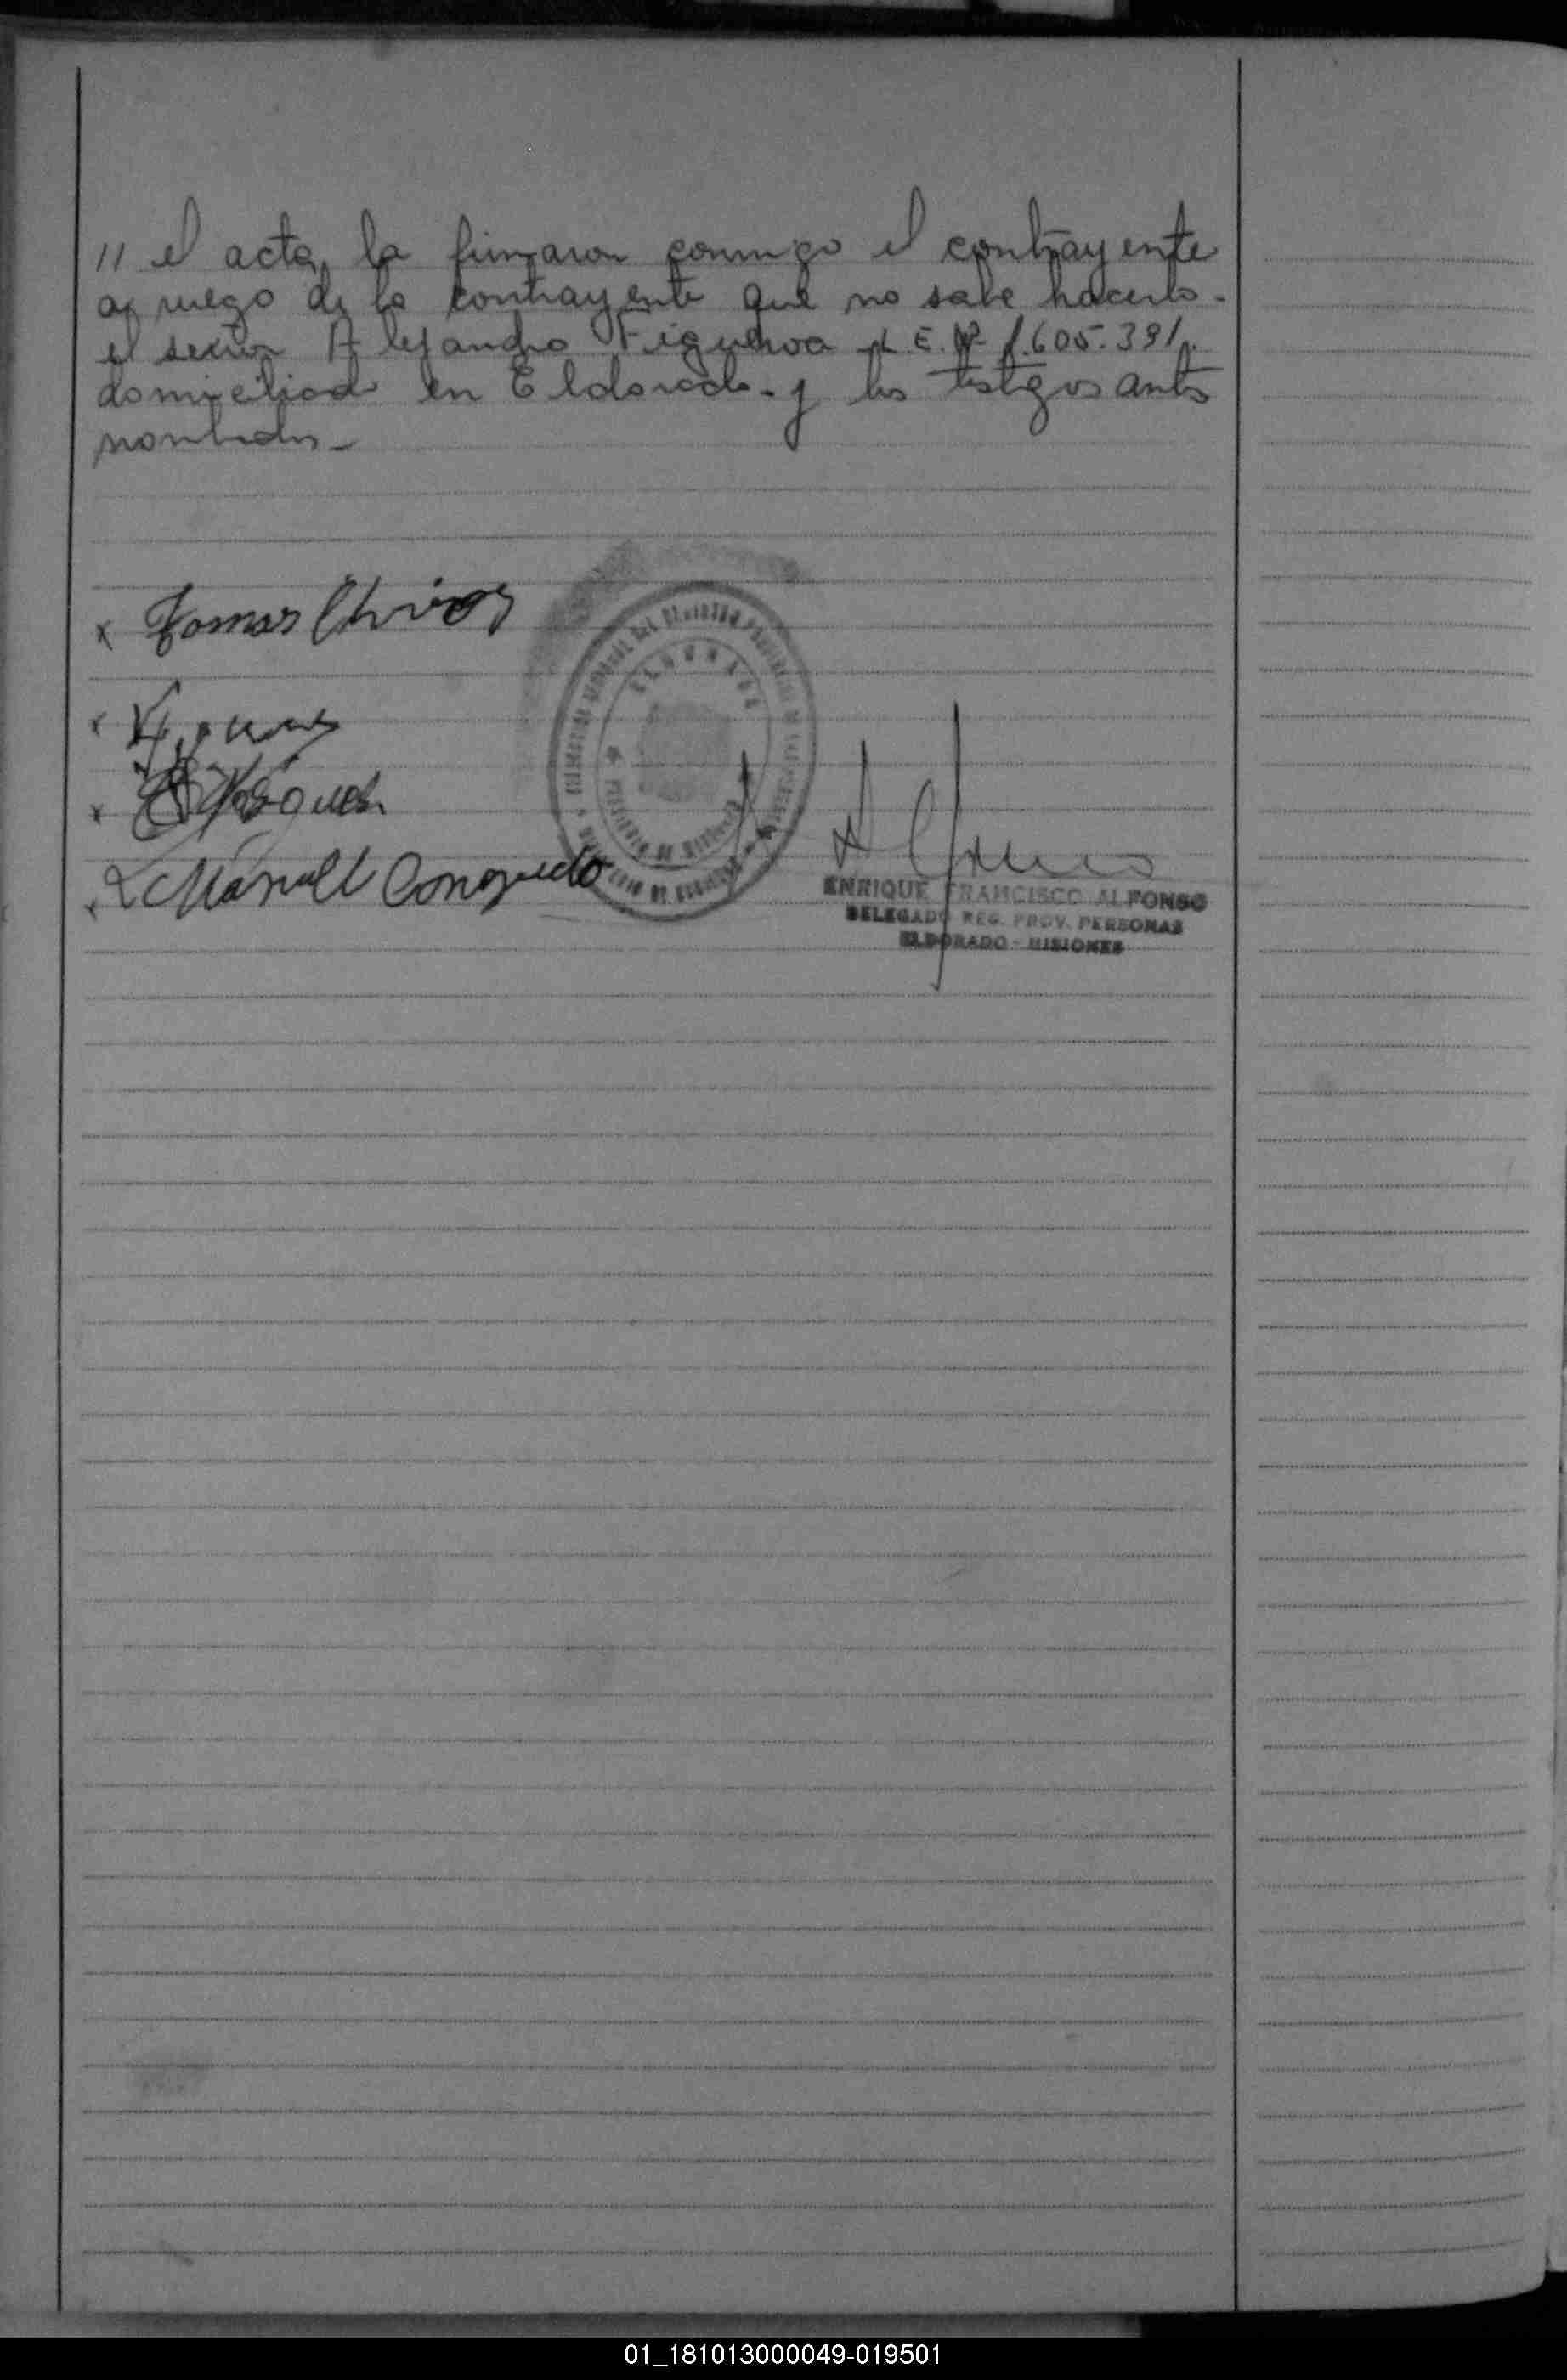 11 el acta, la firmaron conmigo el contrayente
a ruego de la contrayente que no sabe hacerlo-
el señor Alejandro Figueroa L.E. Nº 1.605.391,
domiciliado en Eldorado- y los testigos antes
nombrados-
x Tomas
x
x
x Manuel
ELDORADO
ENRIQUE FRANCISCO ALFONSO
DELEGADO REG. PROV. PERSONAS
ELDORADO - MISIONES
01_181013000049-019501